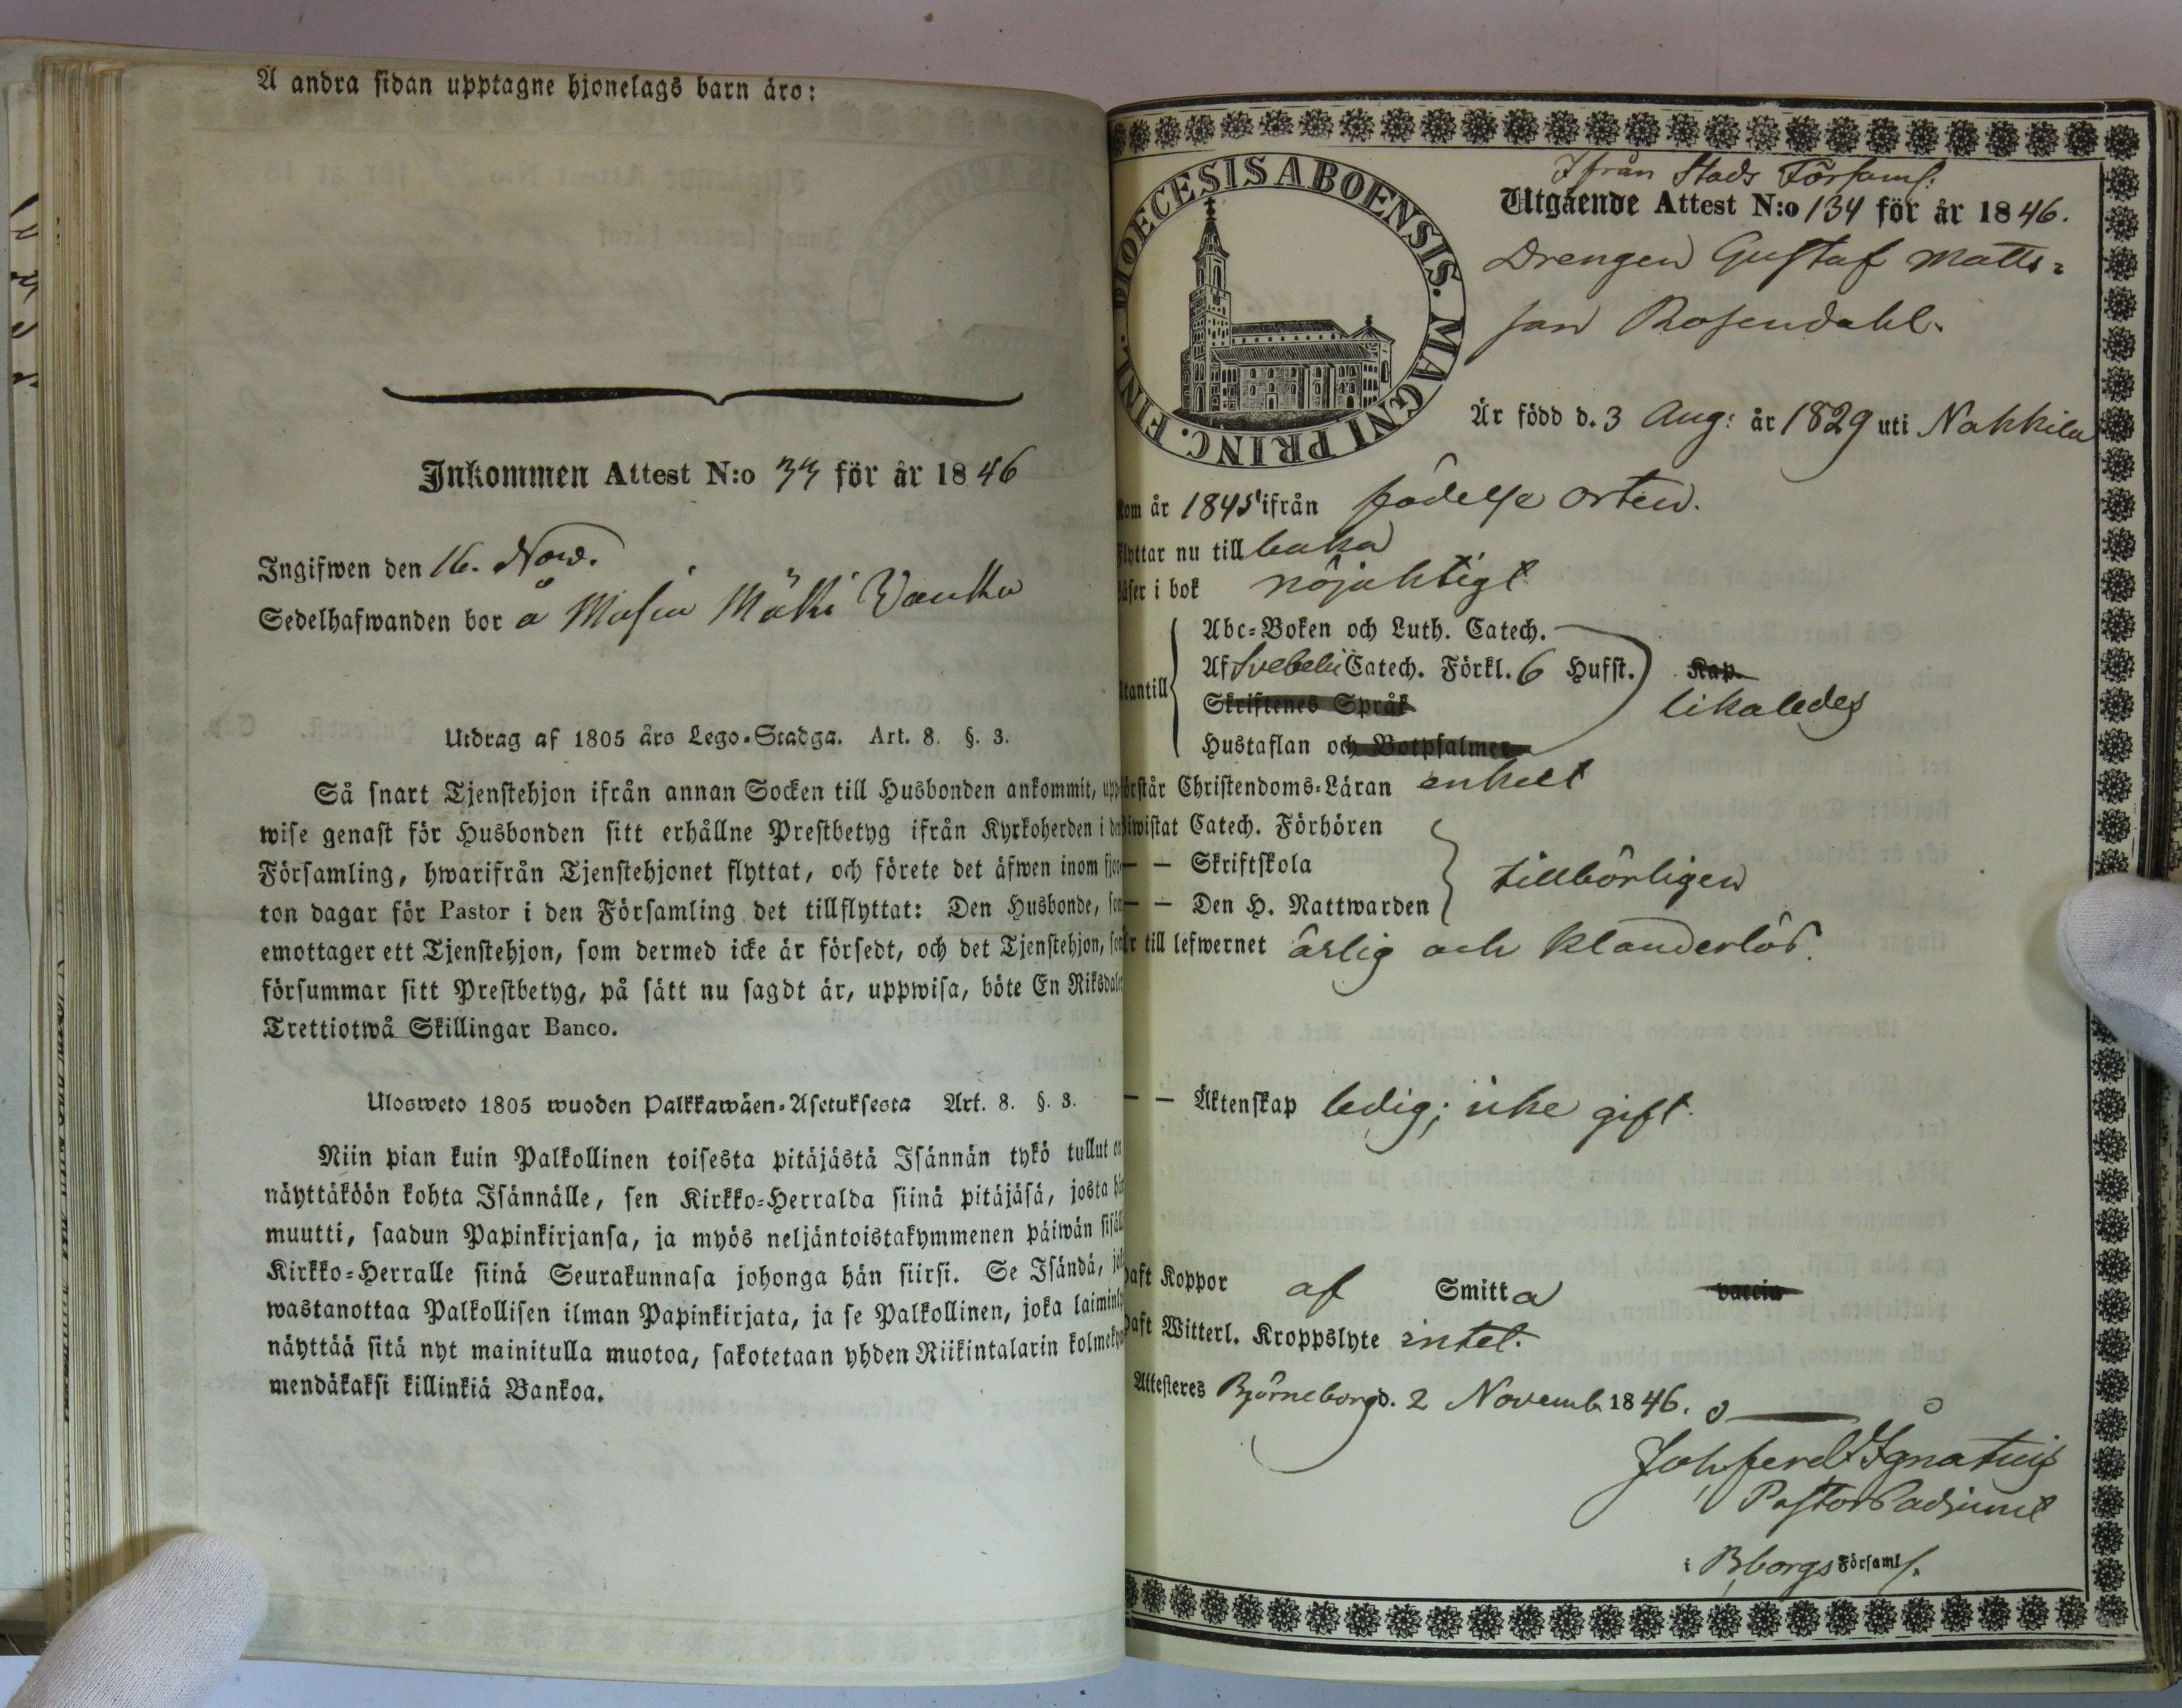 A andra sidan upptagne hjonelags barn äro:
Inkommen Attest N:o 33 för år 1846
Ingifwen den 16. Nov.
Sedelhafwanden bor å
Utdrag af 1805 års Lego-Stadga. Art. 8. §. 3.
Så snart Tjenstehjon ifrån annan Socken till Husbonden ankommit, upp
wise genast för Husbonden sitt erhållne Prestbetyg ifrån Kyrkoherden i den
Församling, hwarifrån Tjenstehjonet flyttat, och förete det äfwen inom fjor
ton dagar för Pastor i den Församling det tillflyttat: Den Husbonde, som
emottager ett Tjenstehjon, som dermed icke är försedt, och det Tjenstehjon, som
försummar sitt Prestbetyg, på sätt nu sagdt är, uppwisa, böte En Riksdaler
Trettiotwå Skillingar Banco.
Ulosweto 1805 wuoden Palkkawäen-Asetuksesta Art. 8. §. 3.
Niin pian kuin Palkollinen toisesta pitäjästä Isännän tykö tullut on
näyttäköön kohta Isännälle, sen Kirkko-Herralda siinä pitäjäsä, josta hän
muutti, saadun Papinkirjansa, ja myös neljäntoistakymmenen päiwän sisäll
Kirkko-Herralle siinä Seurakunnasa johonga hän siirsi. Se Isändä, jok
wastanottaa Palkollisen ilman Papinkirjata, ja se Palkollinen, joka laiminly
näyttää sitä nyt mainitulla muotoa, sakotetaan yhden Riikintalarin kolmeky
mendäkaksi killinkiä Bankoa.
DIOECESIS ABOENSIS. MAGNI PRINC. FINL.
Ifrån Stads Församl:
Utgående Attest N:o 134 för år 1846.
Drengen Gustaf Matts-
son Rosendahl.
Är född d. 3 Aug: år 1829 uti Nakkila
Kom år 1845 ifrån födelse orten.
Flyttar nu till baka
Läser i bok nöjaktigt
Abc-Boken och Luth. Catech.
Af Svebelii Catech. Förkl. 6 Hufst. Kap.
utantill
Skriftenes Språk
likaledes
Hustaflan och Botpsalmer
Förstår Christendoms-Läran enkelt
Biwistat Catech. Förhören
— — Skriftskola
tillbörligen
— — Den H. Nattwarden
Är till lefwernet ärlig och klanderlös.
— — Äktenskap ledig; icke gift.
Haft Koppor af Smitta vaccin
Haft Witterl. Kroppslyte intet.
Attesteres Björneborg d. 2 Novemb 1846.
Joh ferd Ignatius
Pastors adjunct
i Bborgs Församl.